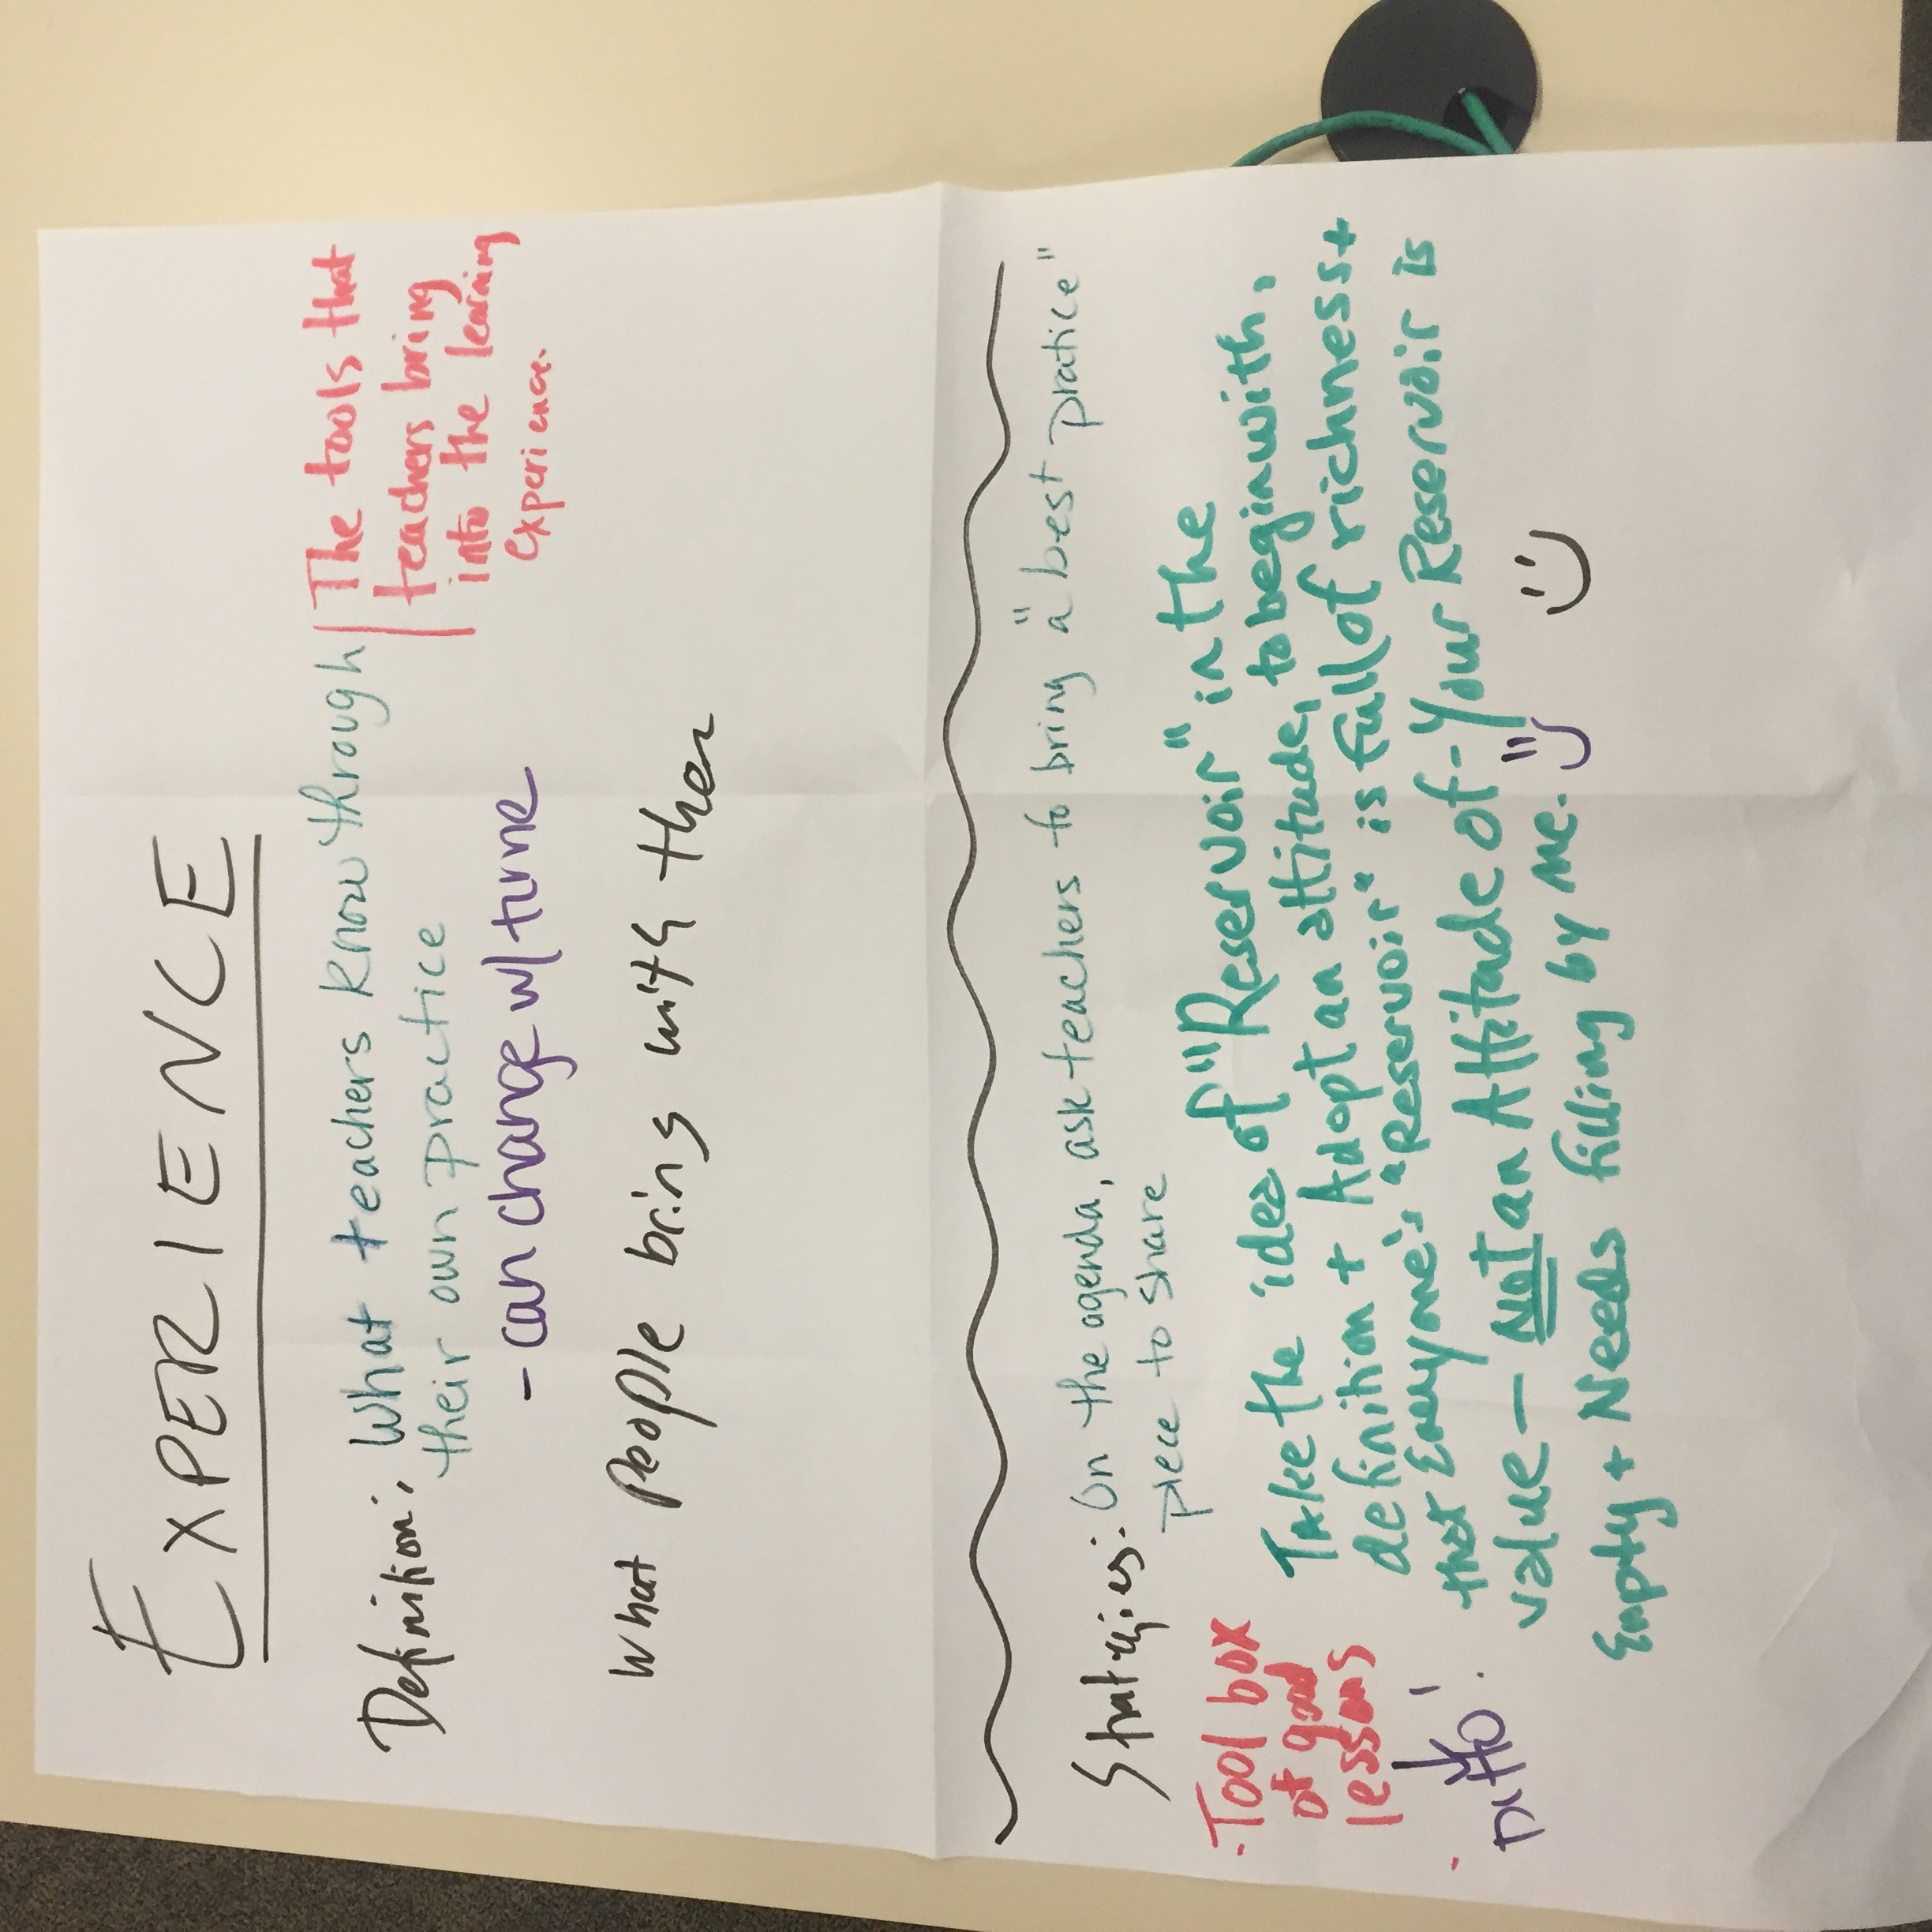 EXPERIENCE
Definition: What teachers know through
their own practice
- can change w/ time
The tools that
teachers bring
into the learning
experience.
What People bring with them
Strategies: On the agenda, ask teachers to bring a "best pratice"
piece to share
- Tool box
of good
lessons
Take the idea of "Reservoir" in the
definition + Adopt an attitude, to begin with,
that Everyone's "Reservoir" is full of richness +
value — Not an Attitude of - Your Reservoir is
Empty + Needs filling by me.
Ditto!